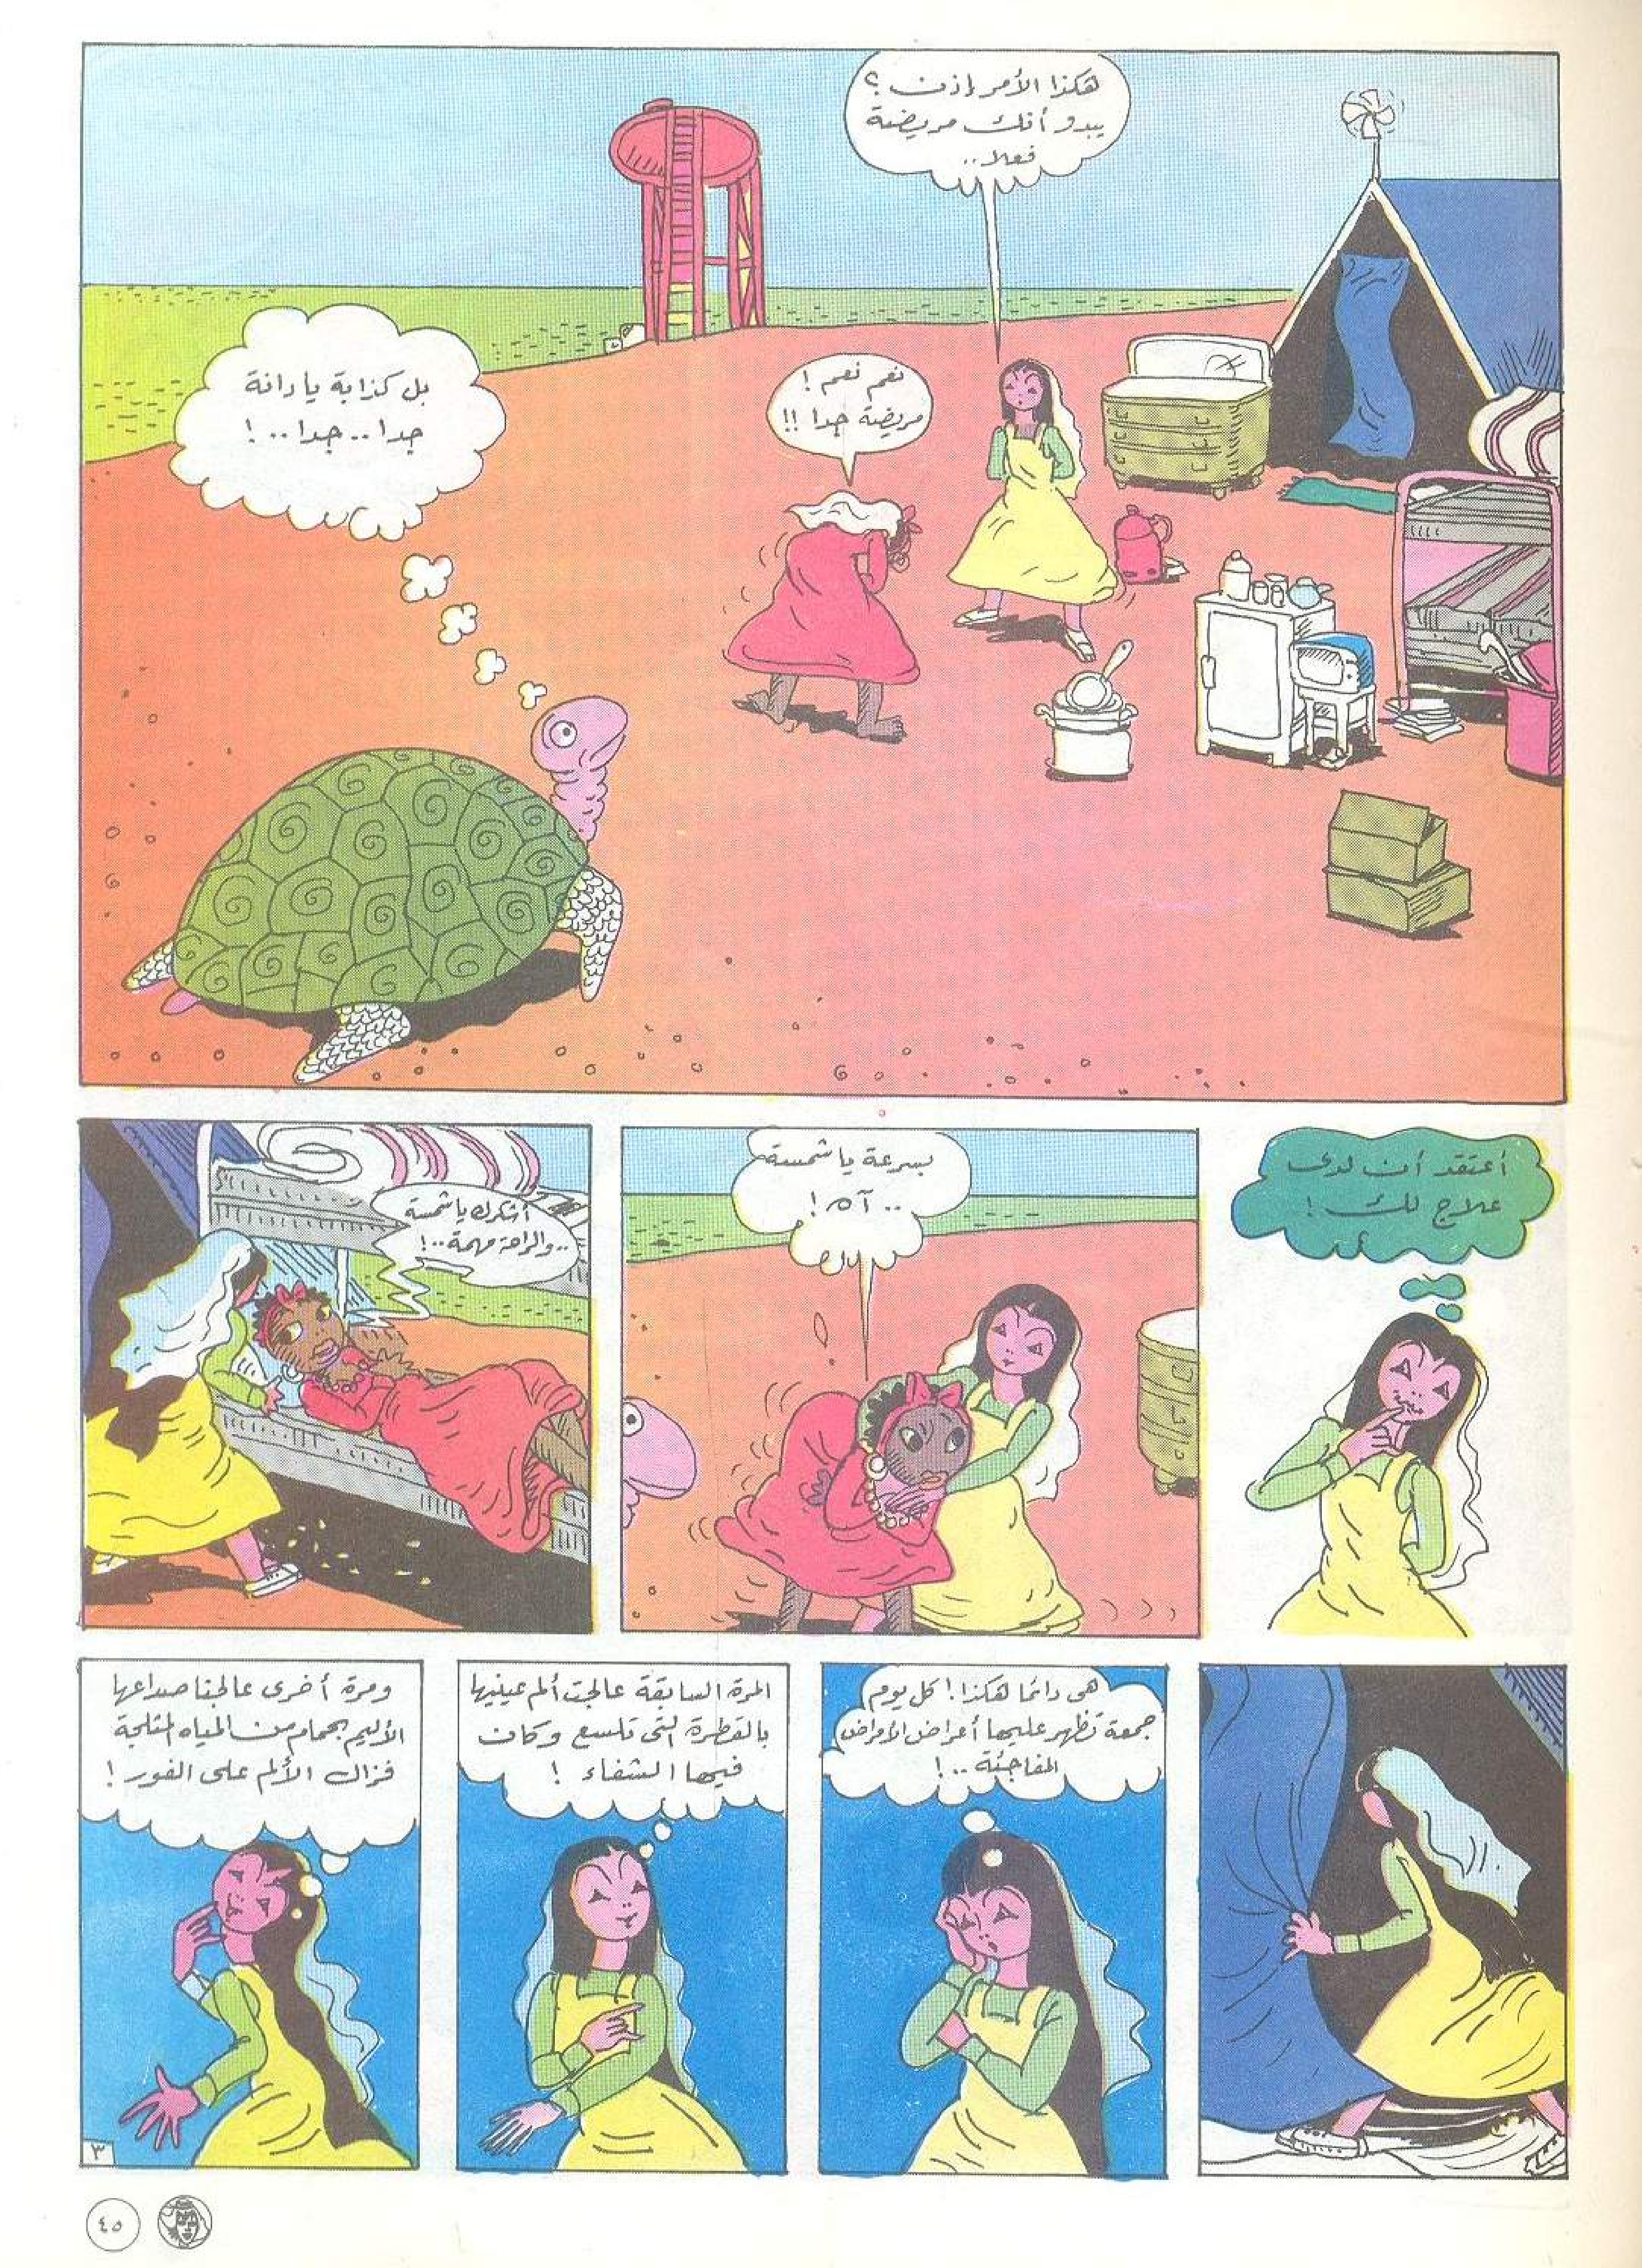 هكذا الأمر إذن ؟
يبدو أنك مريضة
فعلا ..
نعم نعم !
مريضة جدا !!
بل كذابة يا دانة
جدا .. جدا .. !
أعتقد أن لدى
علاج لك !
بسرعة يا شمسة
.. آه !
أشكرك يا شمسة
.. والراحة مهمة .. !
هى دائما هكذا ! كل يوم
جمعة تظهر عليها أعراض الأمراض
المفاجئة .. !
المرة السابقة عالجت ألم عينيها
بالقطرة التى تلسع وكان
فيها الشفاء !
ومرة أخرى عالجنا صداعها
الأليم بحمام من المياه المثلجة
فزال الألم على الفور !
٣
٤٥